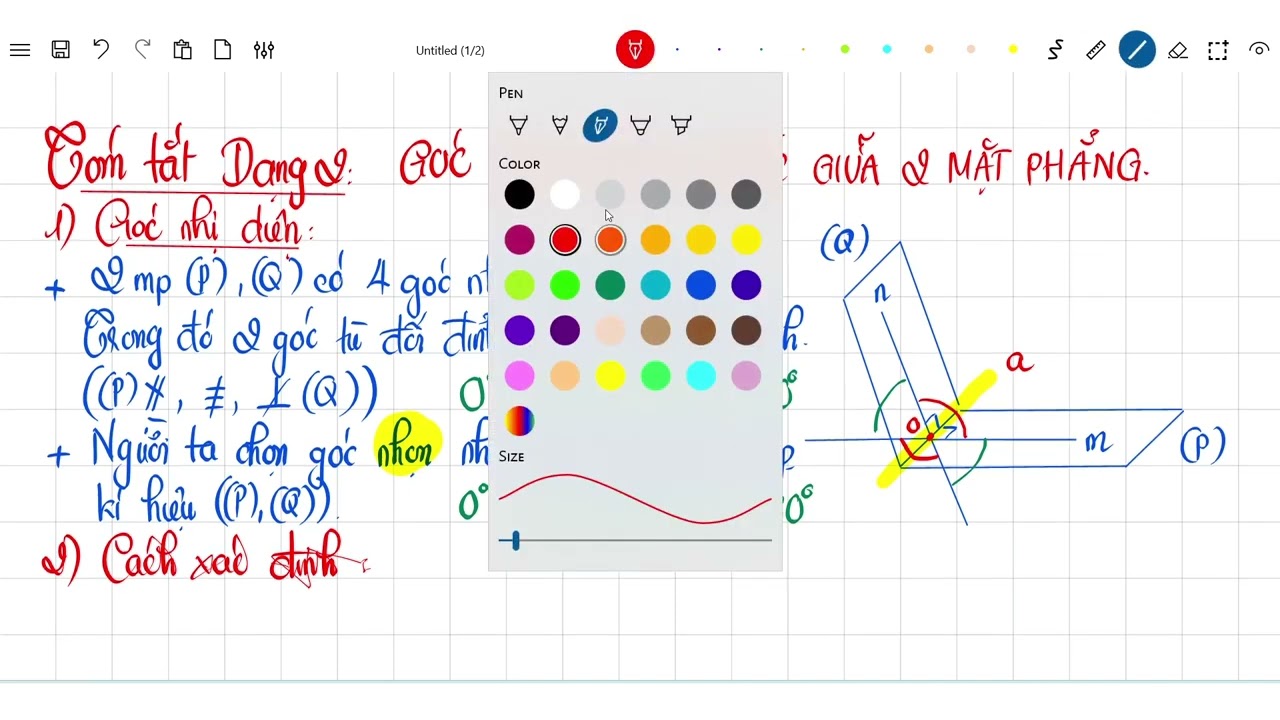 Untitled (1/2)
PEN
COLOR
SIZE
Tóm tắt Dạng 2: GÓC GIỮA 2 MẶT PHẲNG.
1) Góc nhị diện:
+ 2 mp (P), (Q) có 4 góc
Trong đó 2 góc tù đối
((P) ∦, ≢, ⊥̸ (Q)) 0°
+ Người ta chọn góc nhọn
kí hiệu ((P), (Q)). 0° 0°
2) Cách xác định
(Q)
n
a
O
m
(P)